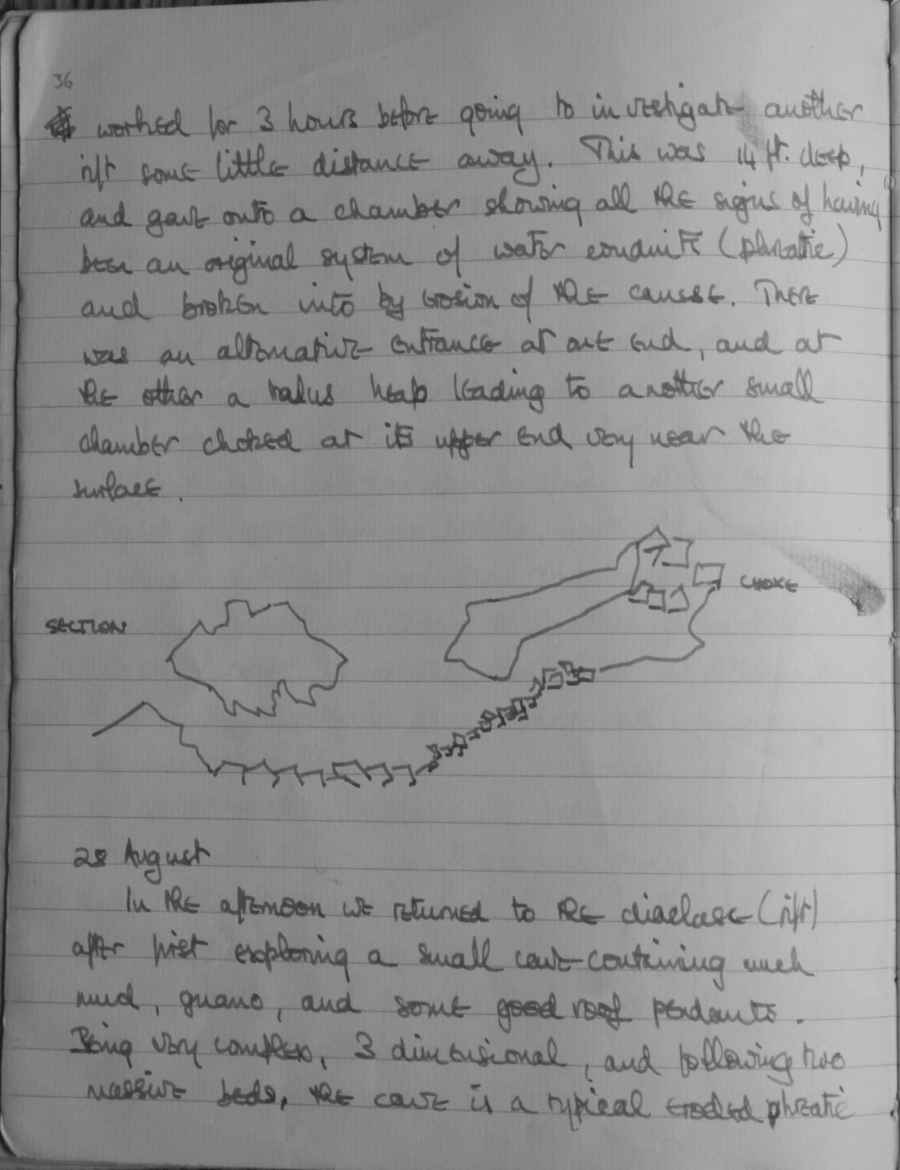 36
worked for 3 hours before going to investigate another
rift some little distance away. This was 14 ft. deep,
and gave onto a chamber showing all the signs of having
been an original system of water conduits (phreatic)
and broken into by erosion of the causse. There
was an alternative entrance at one end, and at
the other a talus heap leading to another small
chamber choked at its upper end very near the
surface.
CHOKE
SECTION
28 August
In the afternoon we returned to the diaclase (rift)
after first exploring a small cave containing much
mud, guano, and some good roof pendants.
Being very complex, 3 dimensional, and following two
massive beds, the cave is a typical eroded phreatic